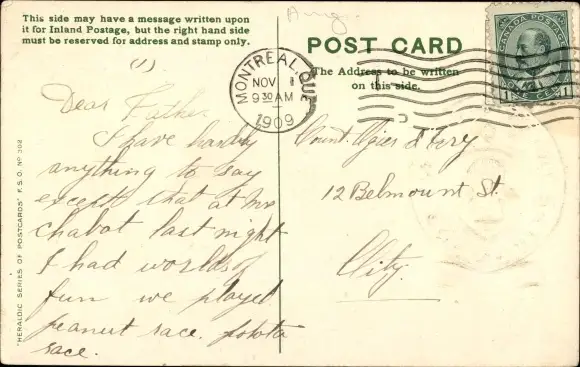 This side may have a message written upon
it for Inland Postage, but the right hand side
must be reserved for address and stamp only.
(1)
Dear Father
I have hardly
anything to say
except that at Mr
chabot last night
I had worlds of
fun we played
peanut race. potato
race.
"HERALDIC SERIES OF POSTCARDS" F.S.O. Nº 302
Aug.
POST CARD
The Address to be written
on this side.
MONTREAL QUE
NOV 1
9 30 AM
1909
CANADA POSTAGE
1 1
Count
12 Belmount St.
City.